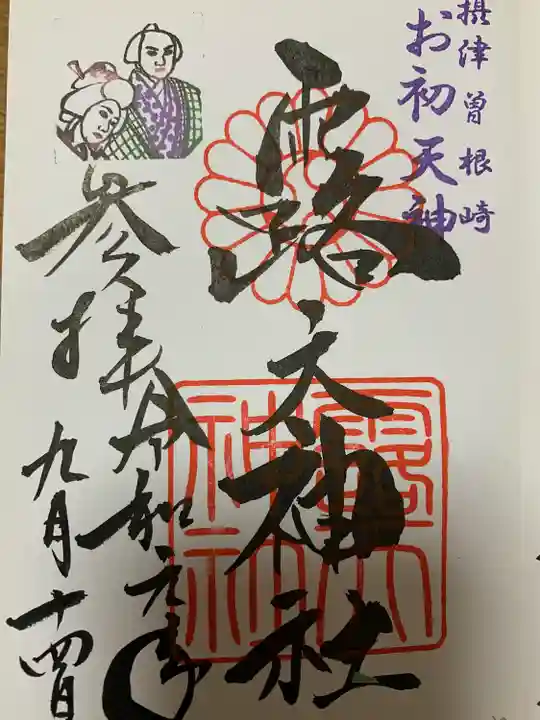 摂津曽根崎
お初天神
露天神社
参拝令和元年
九月十四日
露天神社